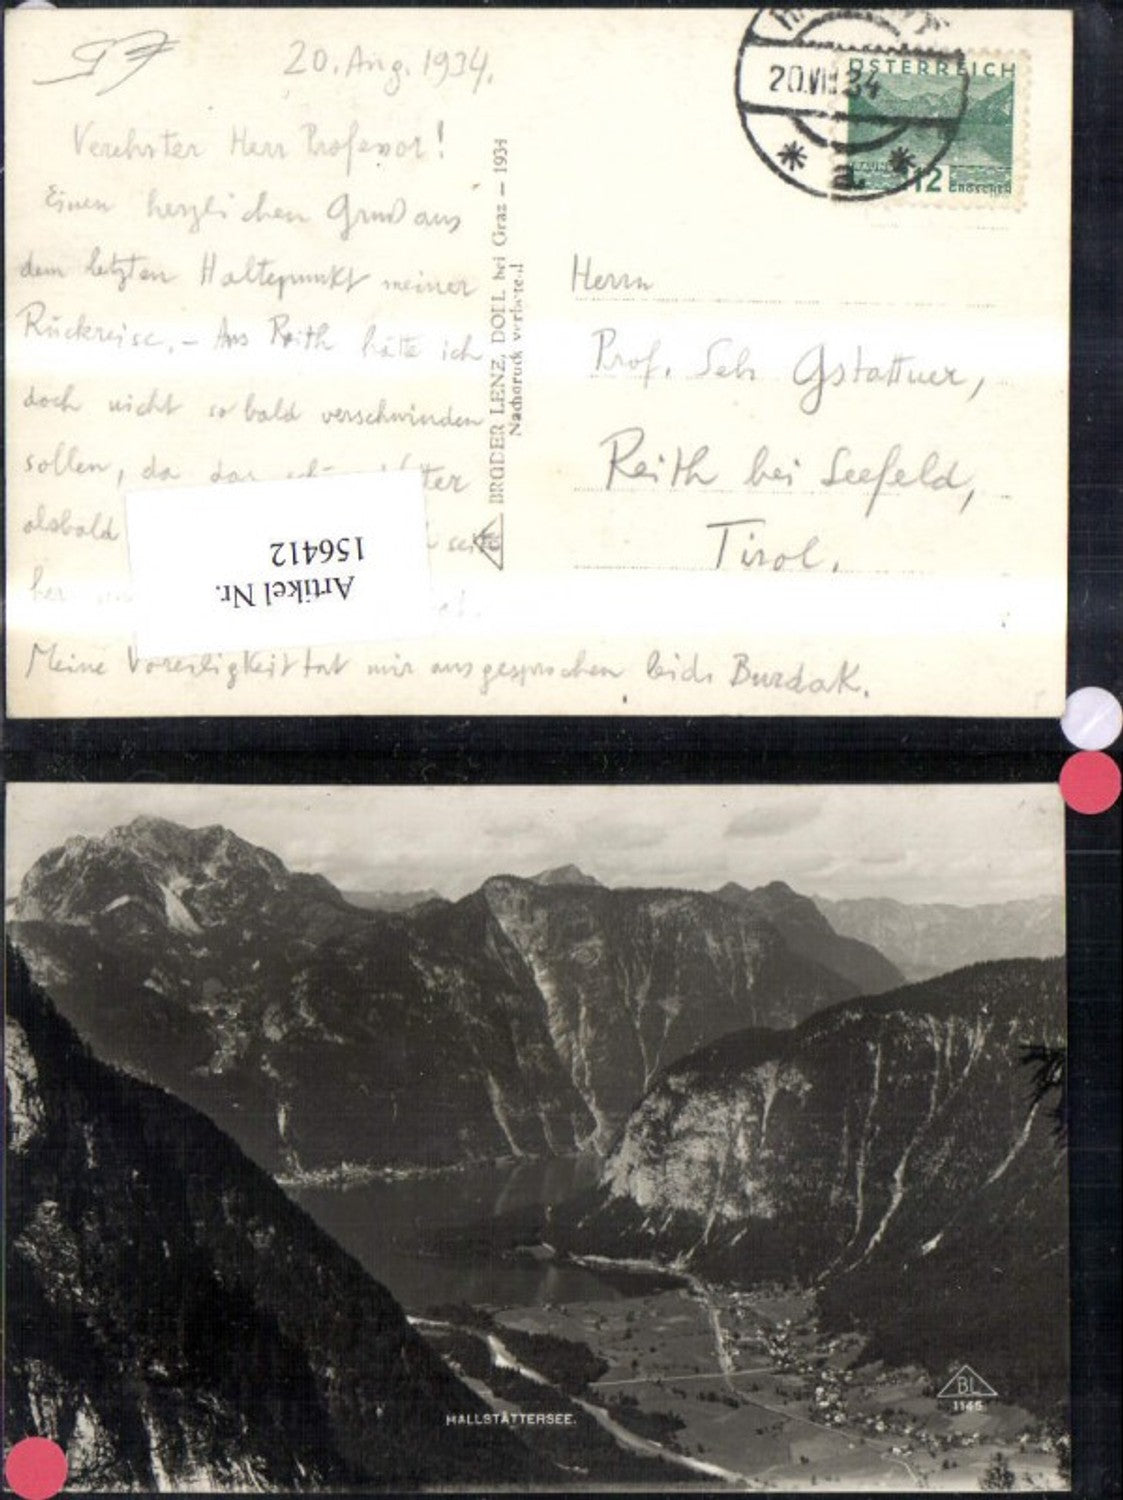 20. Aug. 1934.
Verehrter Herr Professor!
Einen herzlichen Gruß aus
dem letzten Haltepunkt meiner
Rückreise. – Aus Reith hätte ich
doch nicht so bald verschwinden
sollen, da das
alsbald
Meine Voreiligkeit tat mir ausgesprochen leid. Burdak.
BRÜDER LENZ, DOBL bei Graz – 1934
Nachdruck verboten!
20.VIII.34
a
ÖSTERREICH
12 GROSCHEN
Herrn
Prof. Seb Gstattner,
Reith bei Seefeld,
Tirol.
Artikel Nr.
156412
HALLSTÄTTERSEE.
BL
1145